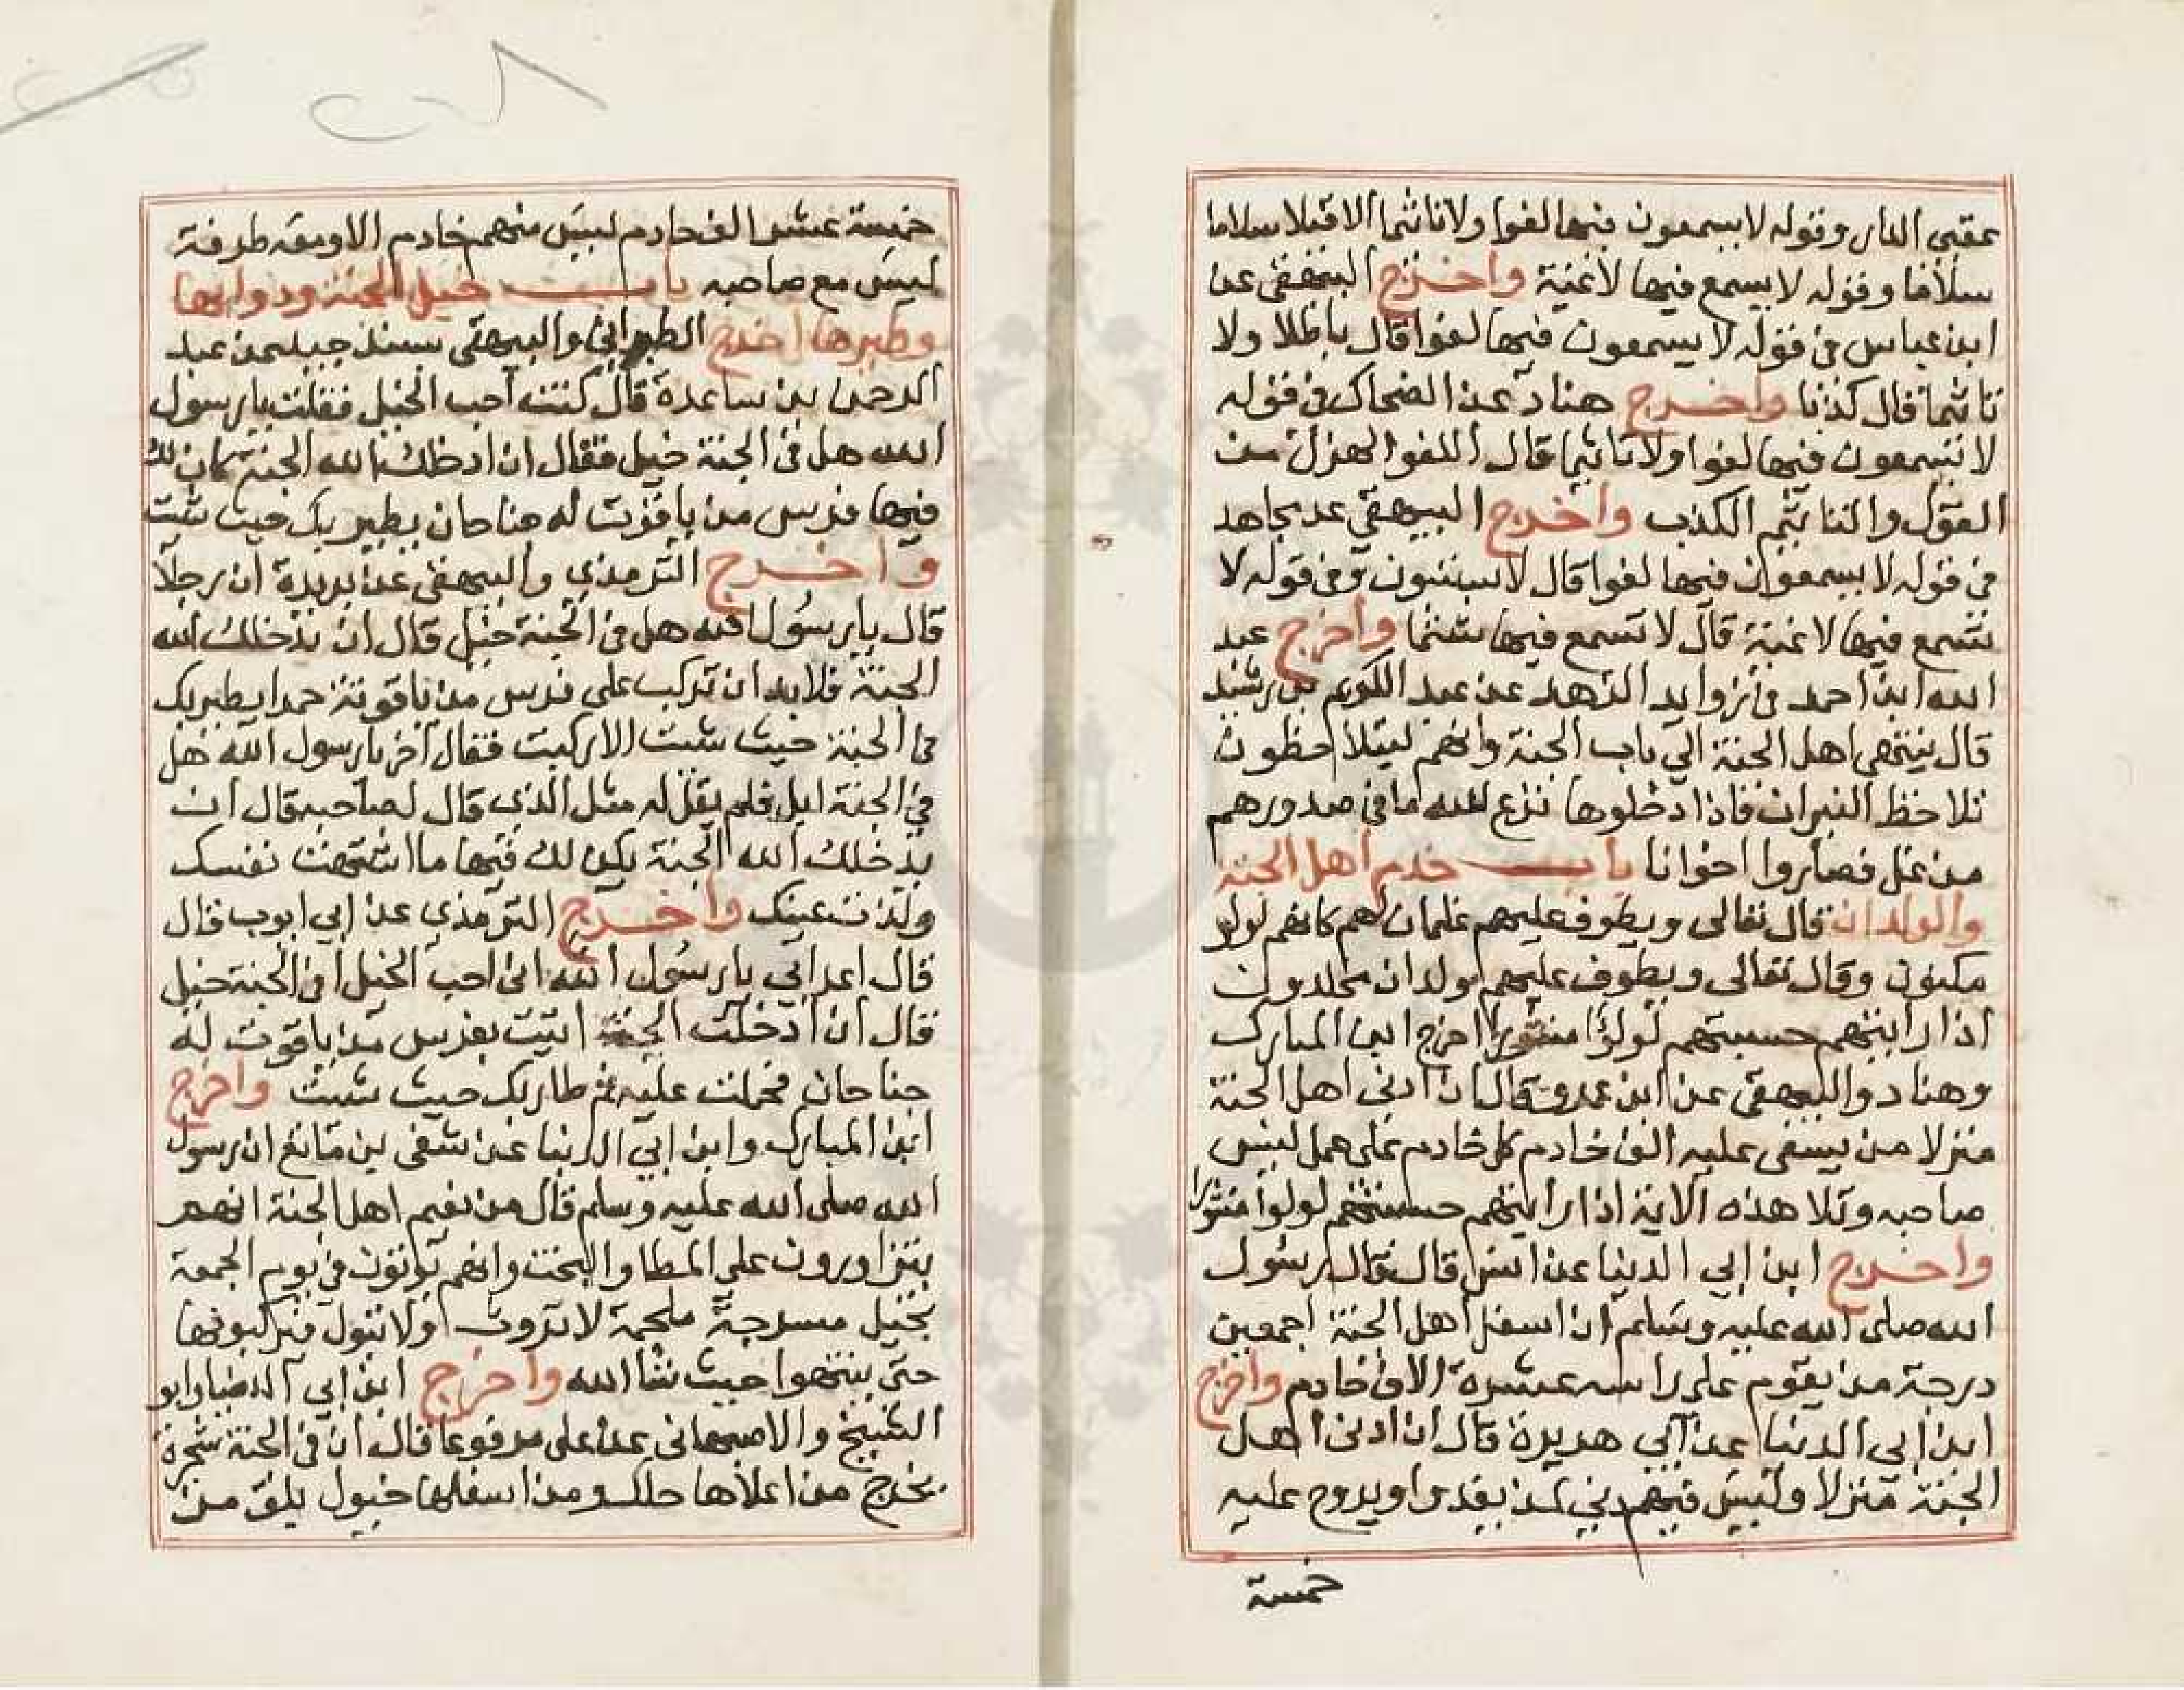 عقبى الدار وقوله لا يسمعون فيها لغوا ولا تاثيما الا قيلا سلاما
سلاما وقوله لا يسمع فيها لاغية واخرج البيهقي عن
ابن عباس في قوله لا يسمعون فيها لغوا قال باطلا ولا
تاثيما قال كذبا واخرج هناد عن الضحاك في قوله
لا يسمعون فيها لغوا ولا تاثيما قال اللغو الهزل من
القول والتاثيم الكذب واخرج البيهقي عن مجاهد
في قوله لا يسمعون فيها لغوا قال لا يستبون وفي قوله لا
تسمع فيها لاغية قال لا تسمع فيها شتما واخرج عبد
الله ابن احمد في زوايد الزهد عن عبد الكريم بن رشيد
قال ينتهي اهل الجنة الي باب الجنة وانهم ليتلاحظون
تلاحظ النيران فاذا دخلوها نزع الله ما في صدورهم
من غل فصاروا اخوانا باب خدم اهل الجنة
والولدان قال تعالى ويطوف عليهم غلمان لهم كانهم لولو
مكنون وقال تعالى ويطوف عليهم ولدان مخلدون
اذا رايتهم حسبتهم لولؤا منثورا اخرج ابن المبارك
وهناد والبيهقي عن ابن عمرو قال ان ادنى اهل الجنة
منزلا من يسعى عليه الف خادم كل خادم على عمل ليس
صاحبه وتلا هذه الاية اذا رايتهم حسبتهم لولوا منثورا
واخرج ابن ابي الدنيا عن انس قال قال رسول
الله صلى الله عليه وسلم ان اسفل اهل الجنة اجمعين
درجة من يقوم على راسه عشرة الاف خادم واخرج
ابن ابي الدنيا عن ابي هريرة قال ان ادنى اهل
الجنة منزلا وليس فيهم دني لمن يغدوا ويروح عليه
خمسة
خمسة عشر الف خادم ليس منهم خادم الا ومعه طرفة
ليس مع صاحبه باب خيل الجنة ودوابها
وطيرها اخرج الطبراني والبيهقي بسند جيد عن عبد
الرحمن بن ساعدة قال كنت احب الخيل فقلت يا رسول
الله هل في الجنة خيل فقال ان ادخلك الله الجنة كان لك
فيها فرس من ياقوت له جناحان يطير بك حيث شئت
واخرج الترمذي والبيهقي عن بريدة ان رجلا
قال يا رسول الله هل في الجنة خيل قال ان يدخلك الله
الجنة فلا بد ان تركب على فرس من ياقوتة حمرا يطير بك
في الجنة حيث شيت الا ركبت فقال اخر يا رسول الله هل
في الجنة ابل فلم يقل له مثل الذي قال لصاحبه قال ان
يدخلك الله الجنة يكن لك فيها ما اشتهت نفسك
ولذت عينك واخرج الترمذي عن ابي ايوب قال
قال اعرابي يا رسول الله اني احب الخيل افي الجنة خيل
قال ان ادخلت الجنة اتيت بفرس من ياقوت له
جناحان فحملت عليه ثم طار بك حيث شيت واخرج
ابن المبارك وابن ابي الدنيا عن شفي بن مانع ان رسول
الله صلى الله عليه وسلم قال من نعيم اهل الجنة انهم
يتزاورون على المطايا والبخت وانهم يوتون في يوم الجمعة
بخيل مسرجة ملجمة لا تروث ولا تبول فيركبونها
حتى ينتهوا حيث شا الله واخرج ابن ابي الدنيا وابو
الشيخ والاصبهاني عن علي مرفوعا قال ان في الجنة شجرة
يخرج من اعلاها حلل ومن اسفلها خيول بلق من